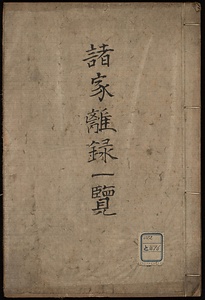 諸家離録一覽